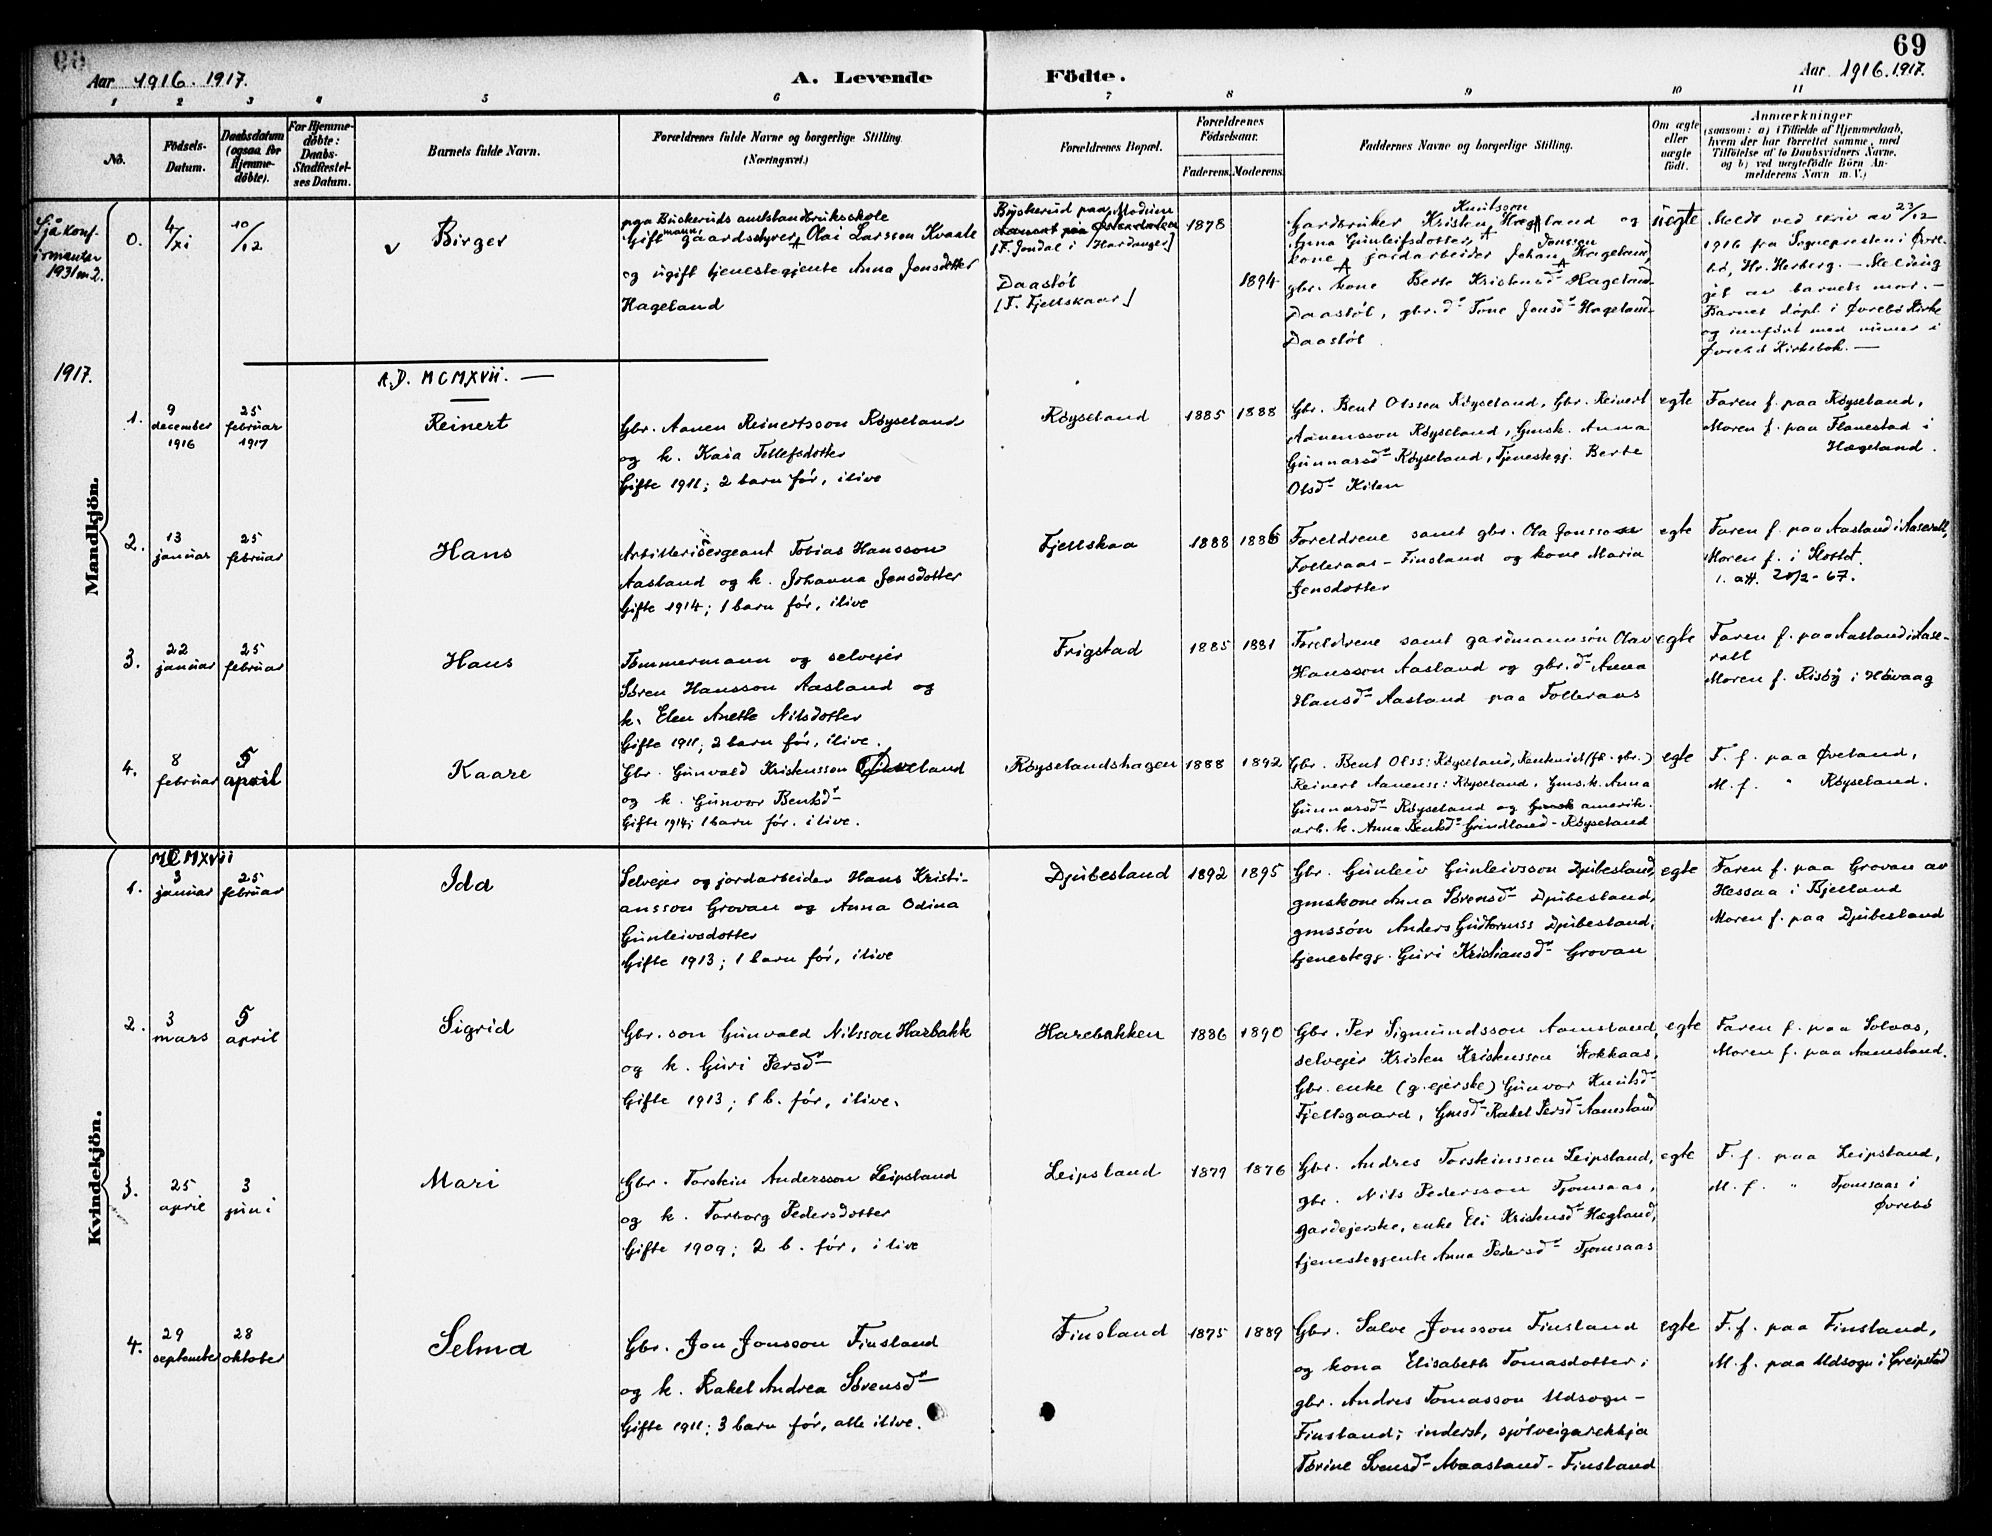 69
Aar 1916. 1917.
A. Levende Födte.
Aar 1916. 1917.
1 2 3 4 5 6 7 8 9 10 11
No.
Födsels-
Datum.
Daabsdatum
(ogsaa for
Hjemme-
döbte).
For Hjemme-
döbte:
Daabs-
Stadfæstel-
ses Datum.
Barnets fulde Navn.
Forældrenes fulde Navne og borgerlige Stilling.
(Næringsvei.)
Forældrenes Bopæl.
Forældrenes
Födselsaar.
Faderens. Moderens.
Faddernes Navne og borgerlige Stilling.
Om ægte
eller
uægte
födt.
Anmærkninger
(saasom: a) i Tilfælde af Hjemmedaab,
hvem der har forrettet samme, med
Tilföielse af to Daabsvidners Navne,
og b) ved uægtefödte Börn An-
melderens Navn m. V.)
Sjå konf-
irmanter
1931 n. 2.
0.
4/XI
10/12
v Birger
paa Buskeruds amtslandbruksskole
Gift mann gaardstyrer Olai Larsson Kvaale
og ugift tjenestegjente Anna Jonsdotter
Hageland
Buskerud paa Modum
[F. Jondal i Hardanger]
Daastöl
[F. Fjellskaar]
1878
1894
Gardbruker Kristen Knutsson Hægeland og
Anna Gunleifsdotter,
kone jordarbeider Johan Jonsson Hægeland,
gbr. kone Berte Kristensd. Hageland
Daastöl, gbr. d. Tone Jonsd. Hægeland
Daastöl.
uegte
Meldt ved skriv av 23/12
1916 fra Sognepresten i Øvre-
bö, Hr. Herberg. — Melding
git av barnets mor. —
Barnet döpt i Øvrebö Kirke
og innfört med numer i
Øvrebö Kirkebok. —
1917.
A.D. MCMXVII. —
Mandkjön.
1.
9
december
1916
25
februar
1917
Reinert
Gbr. Aanen Reinertsson Röyseland
og k. Kaia Tellefsdotter
Gifte 1911; 2 barn för, ilive
Röyseland
1885 1888
Gbr. Bent Olsson Röyseland, Gbr. Reinert
Aanensson Röyseland, Gmsk. Anna
Gunnarsd. Röyseland, Tjenestegj. Berte
Olsd. Kilen
egte
Faren f. paa Röyseland,
Moren f. paa Flanestad i
Hægeland.
2.
13
januar
25
februar
Hans
Artillerisergeant Tobias Hansson
Aasland og k. Johanna Jensdotter
Gifte 1914; 1 barn för, ilive
Fjellskaa
1888 1886
Foreldrene samt gbr. Ola Jonsson
Tolleraas - Finsland og kone Maria
Jensdotter
egte
Faren f. paa Aasland i Aaserall,
Moren f. i Flottet.
1. att. 20/2 - 67.
3.
22
januar
25
februar
Hans
Tömmermann og selvejer
Sören Hansson Aasland og
k. Elen Anette Nilsdotter
Gifte 1911; 2 barn för, ilive.
Frigstad
1885 1881
Foreldrene samt gardmannsön Olav
Hansson Aasland og gbr. d. Anna
Hansd. Aasland paa Tolleraas
egte
Faren f. paa Aasland i Aase-
rall
Moren f. Risöy i Hövaag
4.
8
februar
5
april
Kaare
Gbr. Gunvald Kristensson Øveland
og k. Gunvor Bentsd.
Gifte 1914; 1 barn för. ilive.
Röyselandshagen
1888 1892
Gbr. Bent Olss: Röyseland,
Reinert Aanenss: Röyseland, Gmsk. Anna
Gunnarsd. Röyseland og amerik.
arb. k. Anna Bentsd. Grindland - Röyseland
egte
F. f. paa Øveland,
M. f. " Röyseland.
Kvindekjön.
MCMXVII
1.
3
januar
25
februar
Ida
Selvejer og jordarbeider Hans Kristi-
ansson Grovan og Anna Odina
Gunleivsdotter
Gifte 1913; 1 barn för, ilive
Djubesland
1892 1895
Gbr. Gunleiv Gunleivsson Djubesland,
gmskone Anna Sörensd. Djubesland,
gmssön Anders Gudtormss Djubesland,
tjenestegj. Guri Kristiansd. Grovan
egte
Faren f. paa Grovan av
Hessaa i Bjelland
Moren f. paa Djubesland
2.
3
mars
5
april
Sigrid
Gbr. son Gunvald Nilsson Harbakk
og k. Guri Persd.
Gifte 1913; 1 b. för, ilive.
Harebakken
1886 1890
Gbr. Per Sigmundsson Aamsland,
selvejer Kristen Kristensson Stokkaas,
Gbr. enke (g. ejerske) Gunvor Knutsd.
Fjellsgaard, Gmsd. Rakel Persd. Aamsland
egte
Faren f. paa Solaas,
Moren f. paa Aamsland.
3.
25
april
3
juni
Mari
Gbr. Torstein Andersson Leipsland
og k. Torborg Pedersdotter
Gifte 1909; 2 b. för, ilive
Leipsland
1879 1876
Gbr. Andres Torsteinsson Leipsland,
gbr. Nils Pedersson Tjomsaas,
gardejerske, enke Eli Kristensd. Hægland,
tjenestegjente Anna Pedersd. Tjomsaas
egte
F. f. paa Leipsland,
M. f. " Tjomsaas i
Øvrebö
4.
29
september
28
oktober
Selma
Gbr. Jon Jonsson Finsland
og k. Rakel Andrea Sörensd.
Gifte 1911; 3 barn för, alle ilive.
Finsland
1875 1889
Gbr. Salve Jonsson Finsland
og kona Elisabeth Tomasdotter;
gbr. Andres Tomasson Udsogn -
Finsland; inderst, sjölveigarekkja
Torine Svensd. Maasland - Finsland
egte
F. f. paa Finsland,
M. f. paa Udsogn i Greipstad